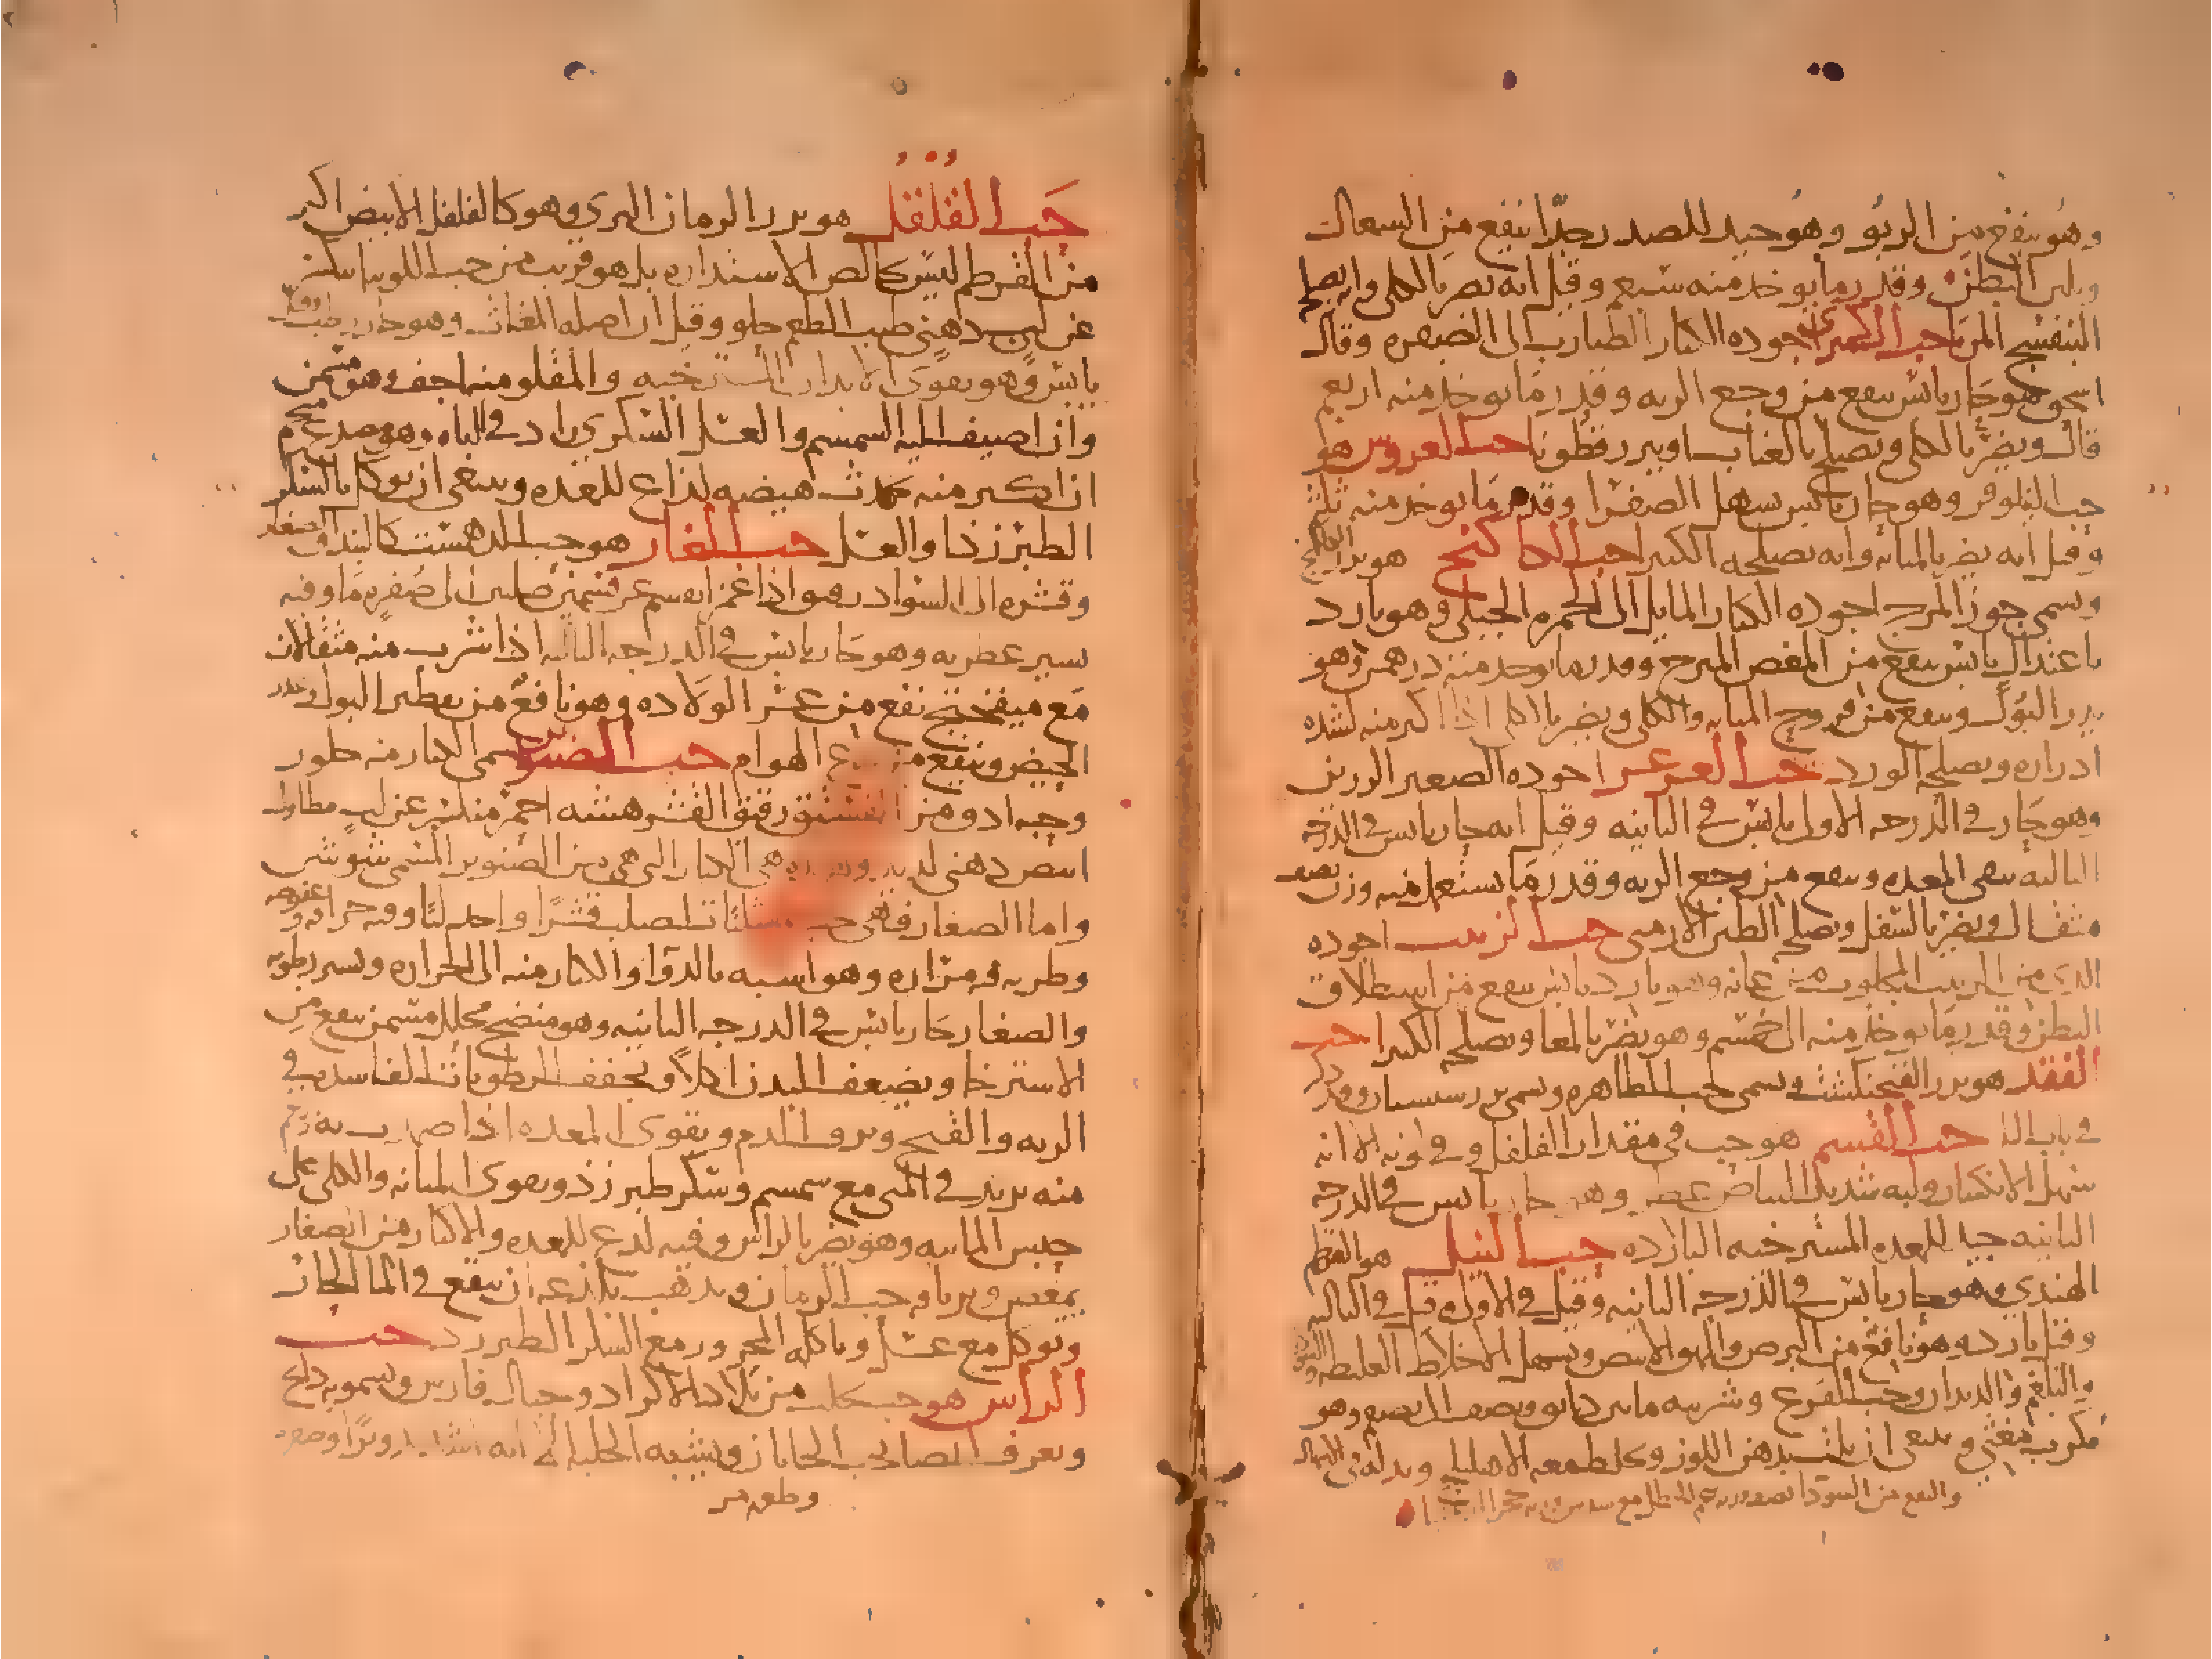 وهو ينفع من الربو وهو جيد للصدر جدا ينفع من السعال
ويلين البطن وقدر ما يوخذ منه سبع وقيل انه يضر بالكلى وانه يصلحه
البنفسج المربا حب الكمثرى اجوده الكبار الضارب الى الصفره وقال
اسحق هو حار يابس ينفع من وجع الريه وقدر ما يوخذ منه اربع
قال ويضر بالكلى ويصلح بالعناب او ببزرقطونا حب العروس هو
حب النيلوفر وهو حار يابس يسهل الصفرا وقدر ما يوخذ منه ثلث
وقيل انه يضر بالمثانه وانه يصلحه الكثيرا حب الكاكنج هو بزر الكاكنج
ويسمى جوز المرج اجوده الكبار المايل الى الحمره الجبلي وهو بارد
باعتدال يابس ينفع من المغص المبرح وقدر ما يوخذ منه درهمين وهو
يدر البول وينفع من قروح المثانه والكلى ويضر بالكلى اذا اكثر منه لشده
ادراره ويصلحه الورد حب العرعر اجوده الصغير الورين
وهو حار في الدرجه الاولى يابس في الثانيه وقيل انه حار يابس في الدرجه
الثالثه ينقي المعده وينفع من وجع الريه وقدر ما يستعمل منه وزن نصف
مثقال ويضر بالسفل ويصلحه الطين الارمني حب الزبيب اجوده
الذي من الزبيب المجلوب من عمانه وهو بارد يابس ينفع من استطلاق
البطن وقدر ما يوخذ منه الى خمسه وهو يضر بالمعا ويصلحه الكثيرا حب
الفقد هو بزر الفنجنكشت ويسمى حب الطاهره ويسمى بزر سيسبان وقد ذكر
في باب البا حب القسم هو حب في مقدار الفلفل وفي لونه الا انه
سهل الانكسار ولبه شديد البياض عطر وهو حار يابس في الدرجه
الثانيه جيد للمعده المسترخيه البارده حب النيل هو القرطم
الهندي وهو حار يابس في الدرجه الثانيه وقيل في الاولى وقيل في الثالثه
وقيل بارد وهو نافع من البرص والبهق الابيض ويسهل الاخلاط الغليظه
والبلغم والديدان وحب القرع وشربته ما بين دانق ونصف الى نصف وهو
مكرب مغثي وينبغي ان يلت بدهن اللوز وتخلط معه الاهليلج وبدله في اسهال
والنفع من السودا نصف وزنه شحم الحنظل مع سدس وزنه حجر
حب القلقل هو بزر الرمان البري وهو كالفلفل الابيض اكبر
من القرطم ليس خالص الاستداره بل هو قريب من حب اللوبيا ينكسر
عن لب دهني طيب الطعم حلو وقيل ان اصله المغاث وهو حار رطب وقيل
يابس وهو يقوي الابدان المسترخيه والمقلو منه اخف وهو مسمن
وان اضيف اليه السمسم والعسل السكري زاد في الباه وهو مصدع متخم
ان اكثر منه تحدث هيضه لذاع للمعده وينبغي ان يوكل بالسكر
الطبرزد والعسل حب الغار هو حب الدهمست كالبندق الصغار
وقشره الى السواد رقيق اذا غمز انقسم عن قسمين صلبين الى صفره ما وفيه
يسير عطريه وهو حار يابس في الدرجه الثانيه اذا شرب منه مثقالان
مع ميفختج نفع من عسر الولاده وهو نافع من تقطير البول ويدر
الحيض وينفع من لسع الهوام حب الصنوبر يسمى الكبار منه جلوز
وحبه ادق من الفستق رقيق القشر هشه احمر منكسر عن لب مطاول
ابيض دهني لذيذ وهذه هي الكبار التي هي من الصنوبر المسمى
واما الصغار فهي حب مثلثا تصلب قشرا واحد لبا وفيه حرافه وعفوصه
وطريه فمزاره وهو اشبه بالدوا والكبار منه الى الحراره ويسير رطوبه
والصغار حار يابس في الدرجه الثانيه وهو منضج محلل مسمن ينفع من
الاسترخا ويضعف البدن اكلا ويجفف الرطوبات الفاسده في
الريه والقيح ونزف الدم ويقوي المعده اذا
منه يزيد في المني مع سمسم وسكر طبرزد ويقوي المثانه والكلى على
حبس المائيه وهو يضر بالراس وفيه لدع للمعده والاكثار من الصغار
يمغص وترياقه حب الرمان ويذهب بلذعه ان ينقع في الما الحار
ويوكل مع عسل وياكله المحرور مع السكر الطبرزد حب
الراس هو حب يجلب من بلاد الاكراد وجبال فارس ويسمونه
ويعرف ايضا بحب ويشبه الحلبه الا انه اشد
وطعمه مر